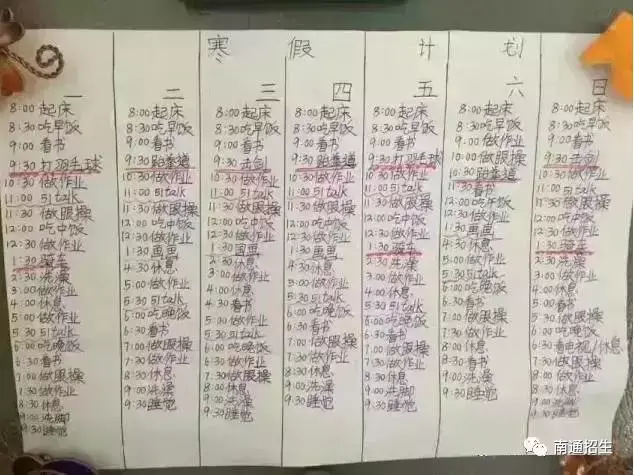 寒假计划
一
8:00起床
8:30吃早饭
9:00看书
9:30打羽毛球
10:30做作业
11:00 51talk
11:30做眼操
12:00吃中饭
12:30做作业
1:30骑车
2:30洗澡
3:00做作业
4:00休息
5:00做作业
5:30 51talk
6:00吃晚饭
6:30看书
7:00做眼操
7:30做作业
8:30休息
9:00洗脚
9:30睡觉
二
8:00起床
8:30吃早饭
9:00看书
9:30跆拳道
10:30做作业
11:00 51talk
11:30做眼操
12:00吃中饭
12:30做作业
1:30画画
4:30休息
5:00做作业
5:30 51talk
6:00吃晚饭
6:30看书
7:00做眼操
7:30做作业
8:30休息
9:00洗澡
9:30睡觉
三
8:00起床
8:30吃早饭
9:00看书
9:30击剑
10:30做作业
11:00 51talk
11:30做眼操
12:00吃中饭
12:30做作业
1:30画画
4:30休息
5:00做作业
5:30 51talk
6:00吃晚饭
6:30做作业
7:30做眼操
8:00休息
9:00洗澡
9:30睡觉
四
8:00起床
8:30吃早饭
9:00看书
9:30跆拳道
10:30做作业
11:00 51talk
11:30做眼操
12:00吃中饭
12:30做作业
1:30画画
4:30休息
5:00做作业
5:30 51talk
6:00吃晚饭
6:30看书
7:00做眼操
7:30做作业
8:00休息
9:00洗澡
9:30睡觉
五
8:00起床
8:30吃早饭
9:00看书
9:30打羽毛球
10:30做作业
11:00 51talk
11:30做眼操
12:00吃中饭
12:30做作业
1:30骑车
2:30洗澡
3:00做作业
4:00休息
5:30 51talk
6:00吃晚饭
6:30看书
7:00做眼操
7:30做作业
8:30休息
9:00洗脚
9:30睡觉
六
8:00起床
8:30吃早饭
9:00看书
10:00做眼操
10:30跆拳道
11:30看书
12:00吃午饭
12:30做作业
1:30画画
4:30休息
5:00做作业
6:00吃晚饭
7:00做作业
7:30做眼操
8:30看书
9:00洗澡
9:30睡觉
日
8:00起床
8:30吃早饭
9:00看书
9:30击剑
10:30做作业
11:30做眼操
12:00吃中饭
12:30做作业
1:30骑车
2:30洗澡
3:00做作业
4:00休息
4:30看书
5:30做眼操
6:00吃晚饭
6:30看电视/休息
7:30做眼操
8:00做作业
8:30休息
9:00洗脚
9:30睡觉
南通招生